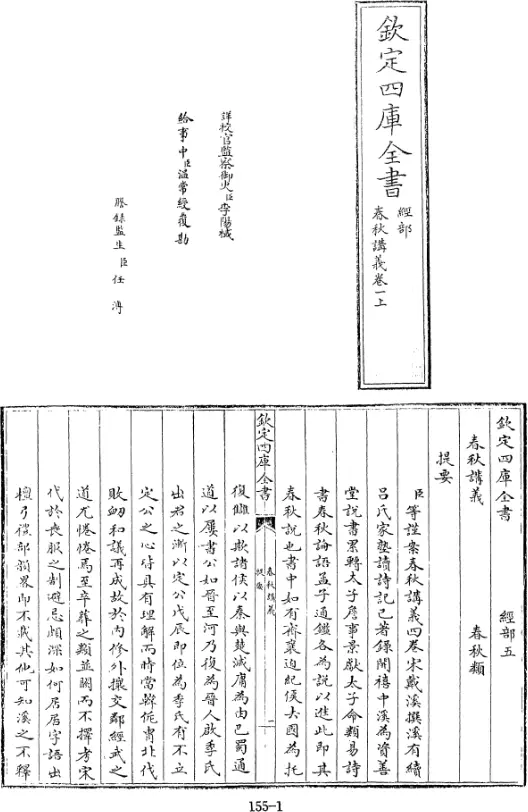 欽定四庫全書
經部
春秋講義卷一上
詳校官監察御史臣李陽棫
給事中臣溫常綬覆勘
謄錄監生臣任溥
欽定四庫全書 經部五
春秋講義 春秋類
提要
臣等謹案春秋講義四卷宋戴溪撰溪有續
呂氏家塾讀詩記已著錄開禧中溪為資善
堂說書累轉太子詹事景獻太子命類易詩
書春秋論語孟子通鑑各為說以進此即其
春秋說也書中如有齊襄迫紀侯去國為托
欽定四庫全書
春秋講義
提要
一
復讎以欺諸侯以秦與楚滅庸為由巴蜀通
道以屢書公如晉至河乃復為晉人啟季氏
出君之漸以定公戊辰即位為季氏有不立
定公之心皆具有理解而時當韓侂胄北代
敗衂和議再成故於內修外攘交鄰經武之
道尤惓惓焉至卒葬之類並闕而不擇考宋
代於喪服之制避忌頗深如何居居字語出
檀弓禮部韻畧即不載其他可知溪之不釋
155-1